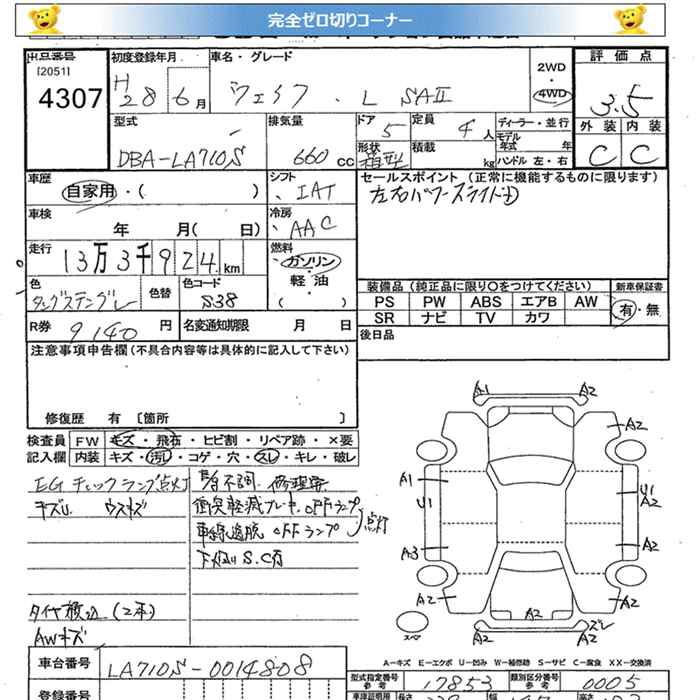 完全ゼロ切りコーナー
出品番号 初度登録年月 車名・グレード 評価点
[2051] 2WD
4307 H28 6月 ウェイク . L SAⅡ 4WD 3.5
型式 排気量 ドア 5 定員 4人 ディーラー・並行 外装 内装
モデル年式 年
DBA-LA710S 660cc 形状 箱型 積載 kg ハンドル 左・右 C C
車歴 シフト セールスポイント (正常に機能するものに限ります)
自家用・( ) IAT 左右パワースライド
車検 冷房
年 月( 日) AAC
走行 燃料
13万3千924km ガソリン
軽油
色 色替 色コード ( ) 装備品(純正品に限り○をつけてください) 新車保証書
タングステングレー S38 PS PW ABS エアB AW 有・無
SR ナビ TV カワ
R券 9140円 名変通知期限 月 日 後日品
注意事項申告欄(不具合内容等は具体的に記入して下さい)
修復歴 有 [箇所 ]
検査員 FW キズ・飛石・ヒビ割・リペア跡・×要
記入欄 内装 キズ・汚レ・コゲ・穴・スレ・キレ・破レ
EGチェックランプ点灯 不調 修理要
キズU ウスキズ 衝突軽減ブレーキ OFFランプ
車線逸脱 OFFランプ 点灯
下廻り S.C有
タイヤ積込(2本)
AWキズ
A1 A2
A2
A1 U1 U1 A2
A3 A2
A2 A2 A2
スペア A2 ズレ A2
A-キズ E-エクボ U-凹み W-補修跡 S-サビ C-腐食 XX-交換済
車台番号 LA710S-0014808 型式指定番号 参考 17853 類別区分番号 参考 0005
登録番号 車体証明用 参考 長さ